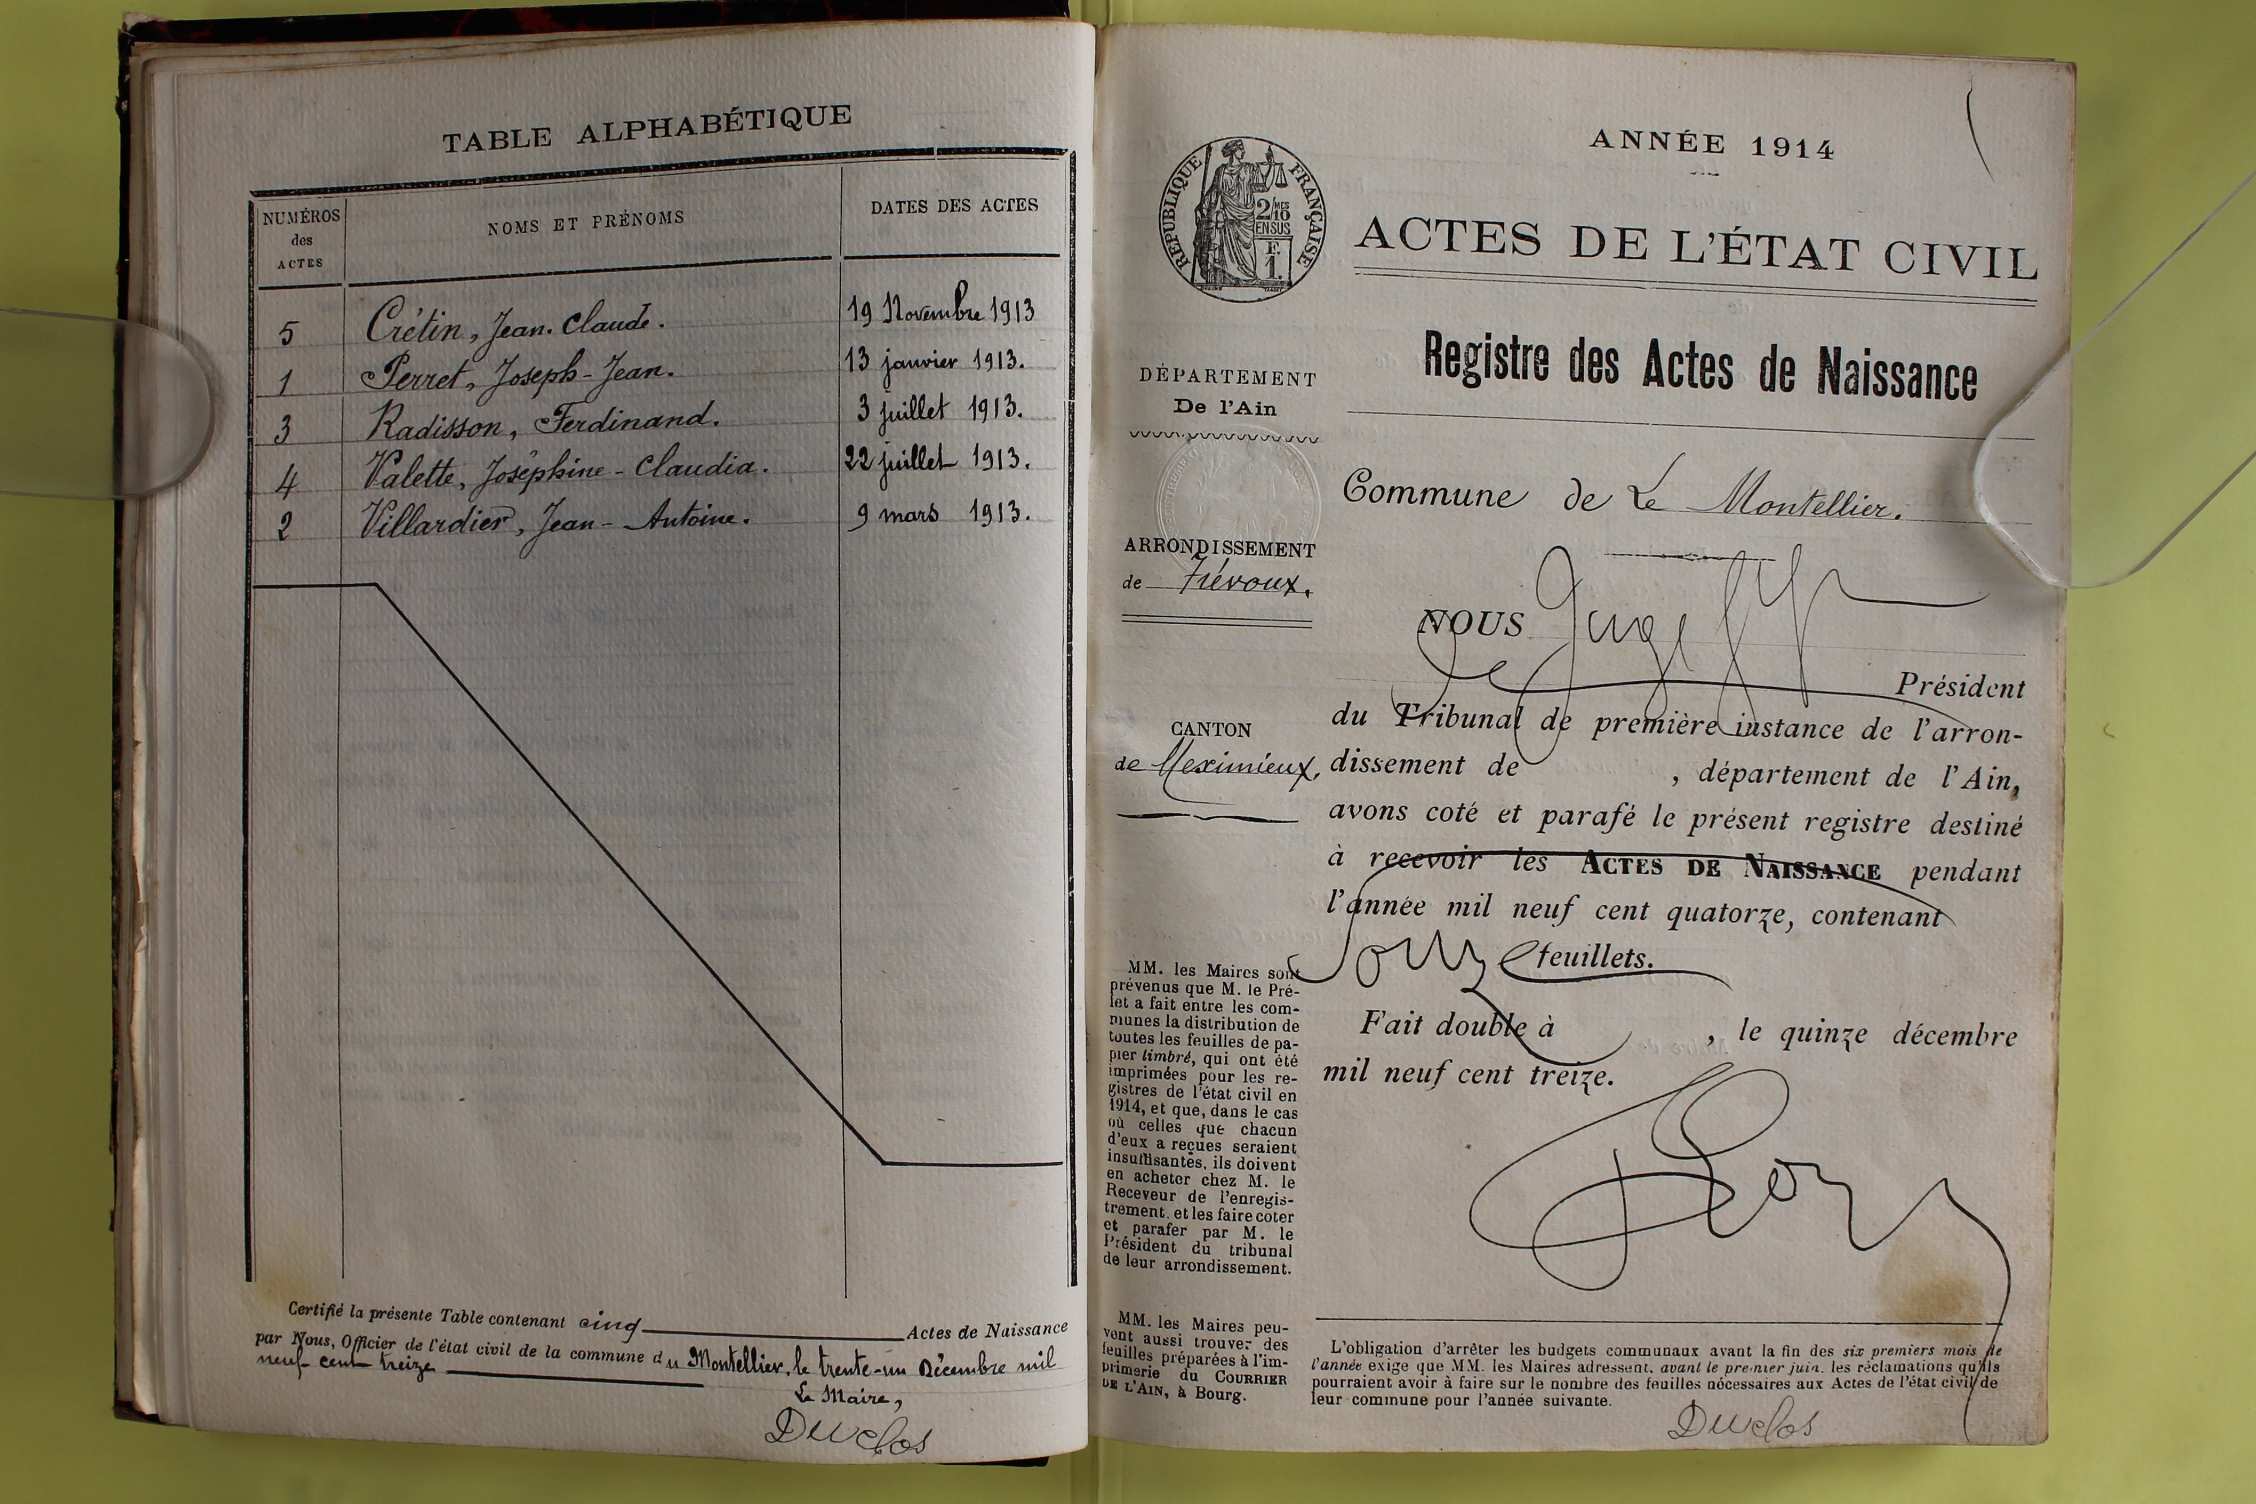 TABLE ALPHABÉTIQUE
NUMÉROS
des
ACTES
NOMS ET PRÉNOMS
DATES DES ACTES
5 Crétin, Jean-Claude. 19 Novembre 1913
1 Perret, Joseph-Jean. 13 janvier 1913.
3 Radisson, Ferdinand. 3 juillet 1913.
4 Valette, Joséphine-Claudia. 22 juillet 1913.
2 Villardier, Jean-Antoine. 9 mars 1913.
Certifié la présente Table contenant cinq Actes de Naissance
par Nous, Officier de l'état civil de la commune du Montellier, le trente-un Décembre mil
neuf cent treize
Le Maire,
Duclos
ANNÉE 1914
RÉPUBLIQUE FRANÇAISE
2/10 MES
EN SUS
F
1.
ACTES DE L'ÉTAT CIVIL
Registre des Actes de Naissance
DÉPARTEMENT
De l'Ain
Commune de Le Montellier.
ARRONDISSEMENT
de Trévoux.
CANTON
de Meximieux,
NOUS Juge
Président
du Tribunal de première instance de l'arron-
dissement de , département de l'Ain,
avons coté et parafé le présent registre destiné
à recevoir les ACTES DE NAISSANCE pendant
l'année mil neuf cent quatorze, contenant
onze feuillets.
Fait double à , le quinze décembre
mil neuf cent treize.
MM. les Maires sont
prévenus que M. le Pré-
fet a fait entre les com-
munes la distribution de
toutes les feuilles de pa-
pier timbré, qui ont été
imprimées pour les re-
gistres de l'état civil en
1914, et que, dans le cas
où celles que chacun
d'eux a reçues seraient
insuffisantes, ils doivent
en acheter chez M. le
Receveur de l'enregis-
trement, et les faire coter
et parafer par M. le
Président du tribunal
de leur arrondissement.
MM. les Maires peu-
vent aussi trouver des
feuilles préparées à l'im-
primerie du COURRIER
DE L'AIN, à Bourg.
L'obligation d'arrêter les budgets communaux avant la fin des six premiers mois de
l'année exige que MM. les Maires adressent, avant le premier juin, les réclamations qu'ils
pourraient avoir à faire sur le nombre des feuilles nécessaires aux Actes de l'état civil de
leur commune pour l'année suivante.
Duclos